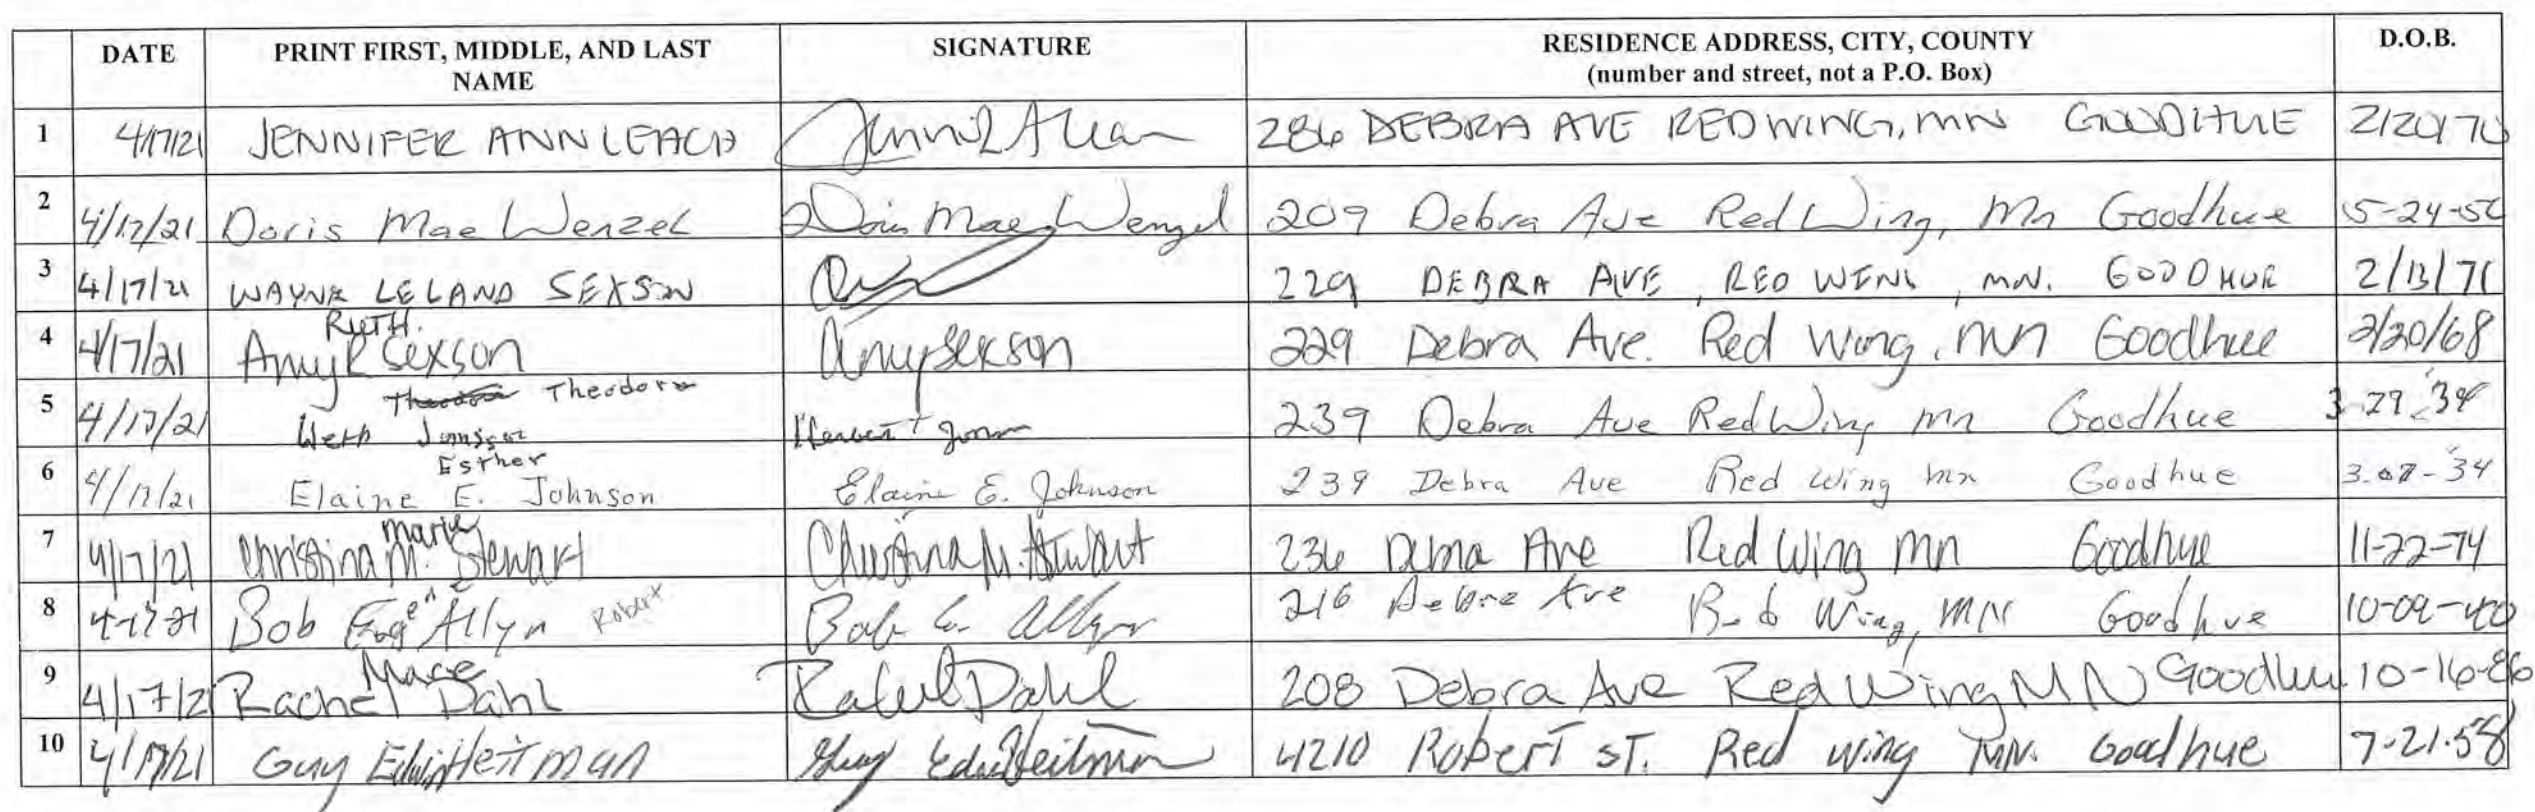 DATE PRINT FIRST, MIDDLE, AND LAST NAME SIGNATURE RESIDENCE ADDRESS, CITY, COUNTY (number and street, not a P.O. Box) D.O.B.
1 4/17/21 JENNIFER ANN LEACH 286 DEBRA AVE RED WING, MN GOODHUE 2/20/70
2 4/17/21 Doris Mae Wenzel Doris Mae Wenzel 209 Debra Ave Red Wing, Mn Goodhue
3 4/17/21 WAYNE LELAND SEXSON 229 DEBRA AVE, RED WING, MN. GOODHUE 2/13/71
RUTH.
4 4/17/21 Amy R Sexson Amy Sexson 229 Debra Ave. Red Wing, MN Goodhue 2/20/68
Theodore
5 4/17/21 Herbert 239 Debra Ave Red Wing Mn Goodhue 3-29-'34
Esther
6 4/17/21 Elaine E. Johnson Elaine E. Johnson 239 Debra Ave Red Wing Mn Goodhue 3-07-'34
Marie
7 4/17/21 Christina M. Stewart Christina M. Stewart 236 Debra Ave Red Wing Mn Goodhue 11-22-74
8 4-17-21 Bob Allyn Robert Bob E. Allyn 216 Debra Ave Red Wing, MN Goodhue 10-02-40
Marie
9 4/17/2 Rachel Dahl Rachel Dahl 208 Debra Ave Red Wing MN Goodhue 10-16-86
10 4/17/21 Guy Edwin Heitman Guy Edwin Heitman 4210 Robert ST. Red Wing MN. Goodhue 7-21-58